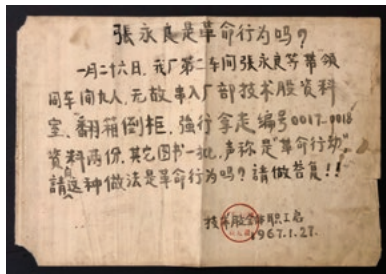 张永良是革命行为吗？
一月二十六日，我厂第二车间张永良等带领
同车间九人，无故串入厂部技术股资料
室，翻箱倒柜，强行拿走编号0017-0018
资料两份，其它图书一批，声称是“革命行动”。
請这种做法是革命行为吗？請做答复！！
技术股全体职工启
1967.1.27.